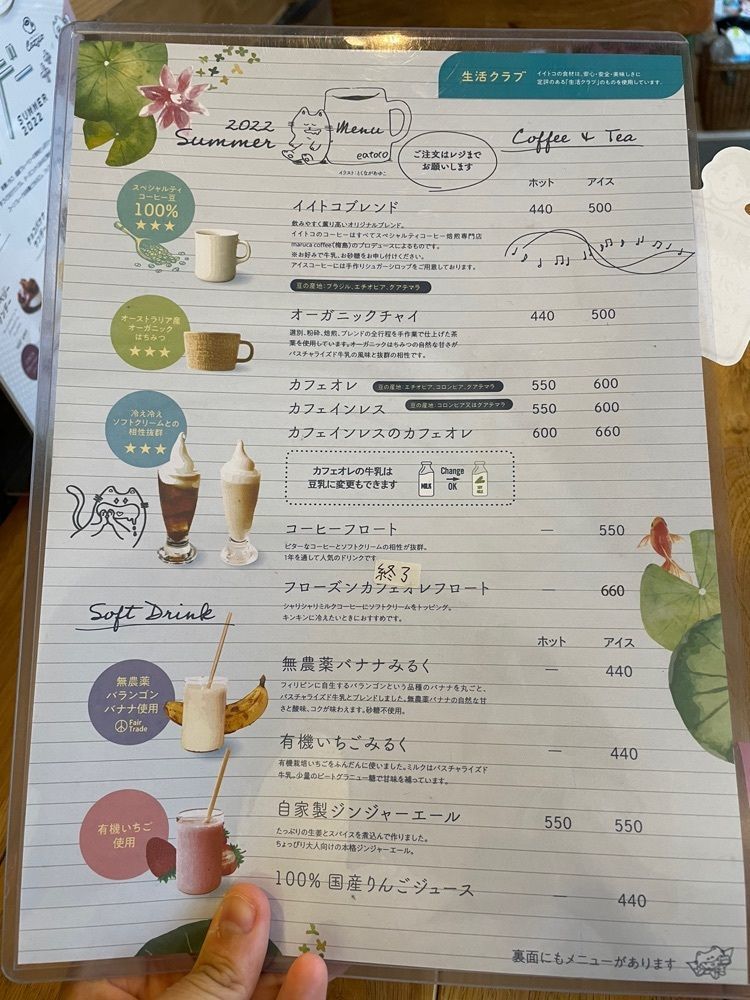 SUMMER
2022
生活クラブ
イイトコの食材は、安心・安全・美味しさに
定評のある「生活クラブ」のものを使用しています。
2022
Summer
Menu
eatoco
イラスト:とくながあゆこ
ご注文はレジまで
お願いします
Coffee & Tea
ホット アイス
スペシャルティ
コーヒー豆
100%
★★★
イイトコブレンド 440 500
飲みやすく薫り高いオリジナルブレンド。
イイトコのコーヒーはすべてスペシャルティコーヒー焙煎専門店
maruca coffee(梅島)のプロデュースによるものです。
※お好みで牛乳、お砂糖をお申し付けください。
アイスコーヒーには手作りシュガーシロップをご用意しております。
豆の産地:ブラジル、エチオピア、グアテマラ
オーストラリア産
オーガニック
はちみつ
★★★
オーガニックチャイ 440 500
選別、粉砕、焙煎、ブレンドの全行程を手作業で仕上げた茶
葉を使用しています。オーガニックはちみつの自然な甘さが
パスチャライズド牛乳の風味と抜群の相性です。
カフェオレ 豆の産地:エチオピア、コロンビア、グアテマラ 550 600
カフェインレス 豆の産地:コロンビア又はグアテマラ 550 600
カフェインレスのカフェオレ 600 660
冷え冷え
ソフトクリームとの
相性抜群
★★★
カフェオレの牛乳は
豆乳に変更もできます
MILK
Change
OK
SOY
MILK
コーヒーフロート — 550
ビターなコーヒーとソフトクリームの相性が抜群。
1年を通して人気のドリンクです
終了
フローズンカフェオレフロート — 660
シャリシャリミルクコーヒーにソフトクリームをトッピング。
キンキンに冷えたいときにおすすめです。
Soft Drink
ホット アイス
無農薬
バランゴン
バナナ使用
Fair
Trade
無農薬バナナみるく — 440
フィリピンに自生するバランゴンという品種のバナナを丸ごと、
パスチャライズド牛乳とブレンドしました。無農薬バナナの自然な甘
さと酸味、コクが味わえます。砂糖不使用。
有機いちごみるく — 440
有機栽培いちごをふんだんに使いました。ミルクはパスチャライズド
牛乳。少量のビートグラニュー糖で甘味を補っています。
有機いちご
使用
自家製ジンジャーエール 550 550
たっぷりの生姜とスパイスを煮込んで作りました。
ちょっぴり大人向けの本格ジンジャーエール。
100% 国産りんごジュース — 440
裏面にもメニューがあります